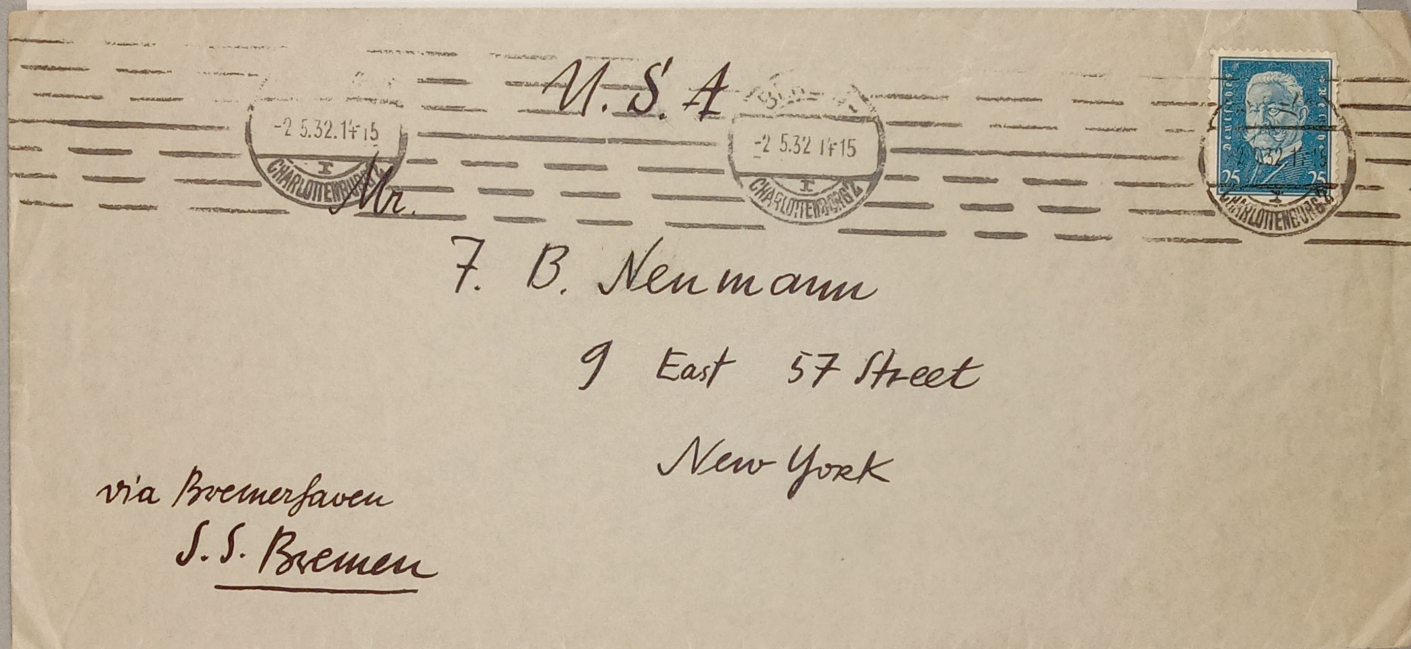 U.S.A
-2.5.32.14-15
I
CHARLOTTENBURG 2
-2 5.32 14-15
I
CHARLOTTENBURG 2
Deutsches Reich
25 25
CHARLOTTENBURG 2
Mr.
J. B. Neumann
9 East 57 Street
New York
via Bremerhaven
S.S. Bremen